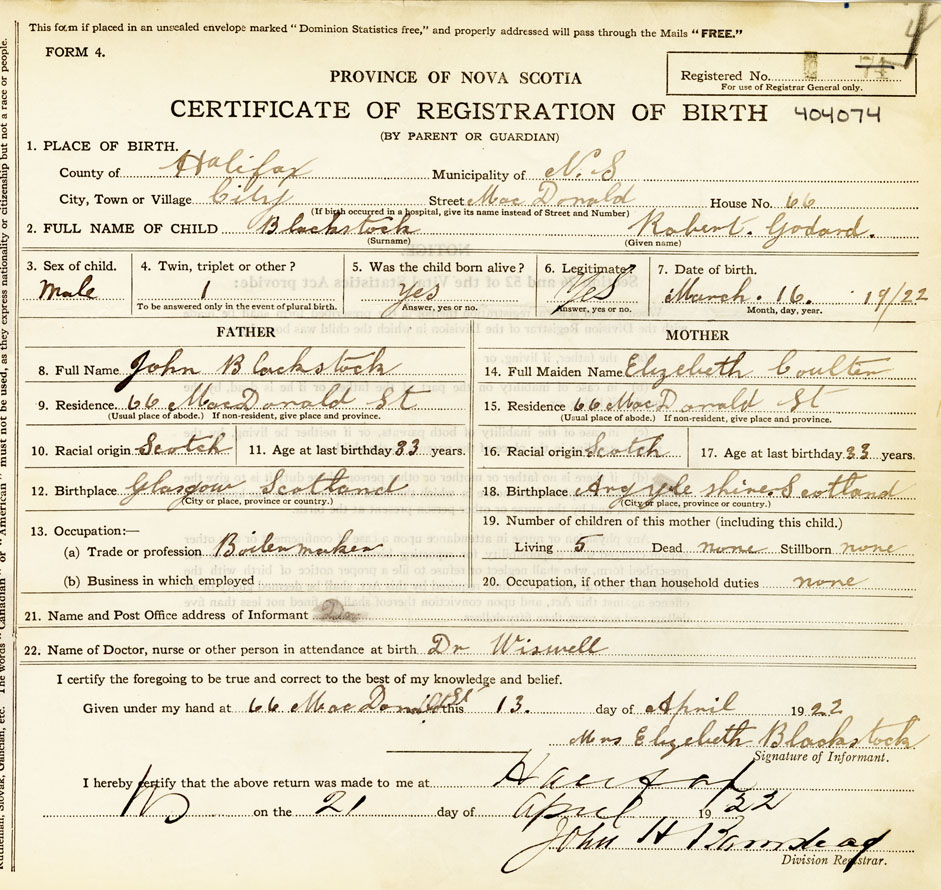 This form if placed in an unsealed envelope marked "Dominion Statistics free," and properly addressed will pass through the Mails "FREE."
4
FORM 4.
PROVINCE OF NOVA SCOTIA
Registered No.
For use of Registrar General only.
CERTIFICATE OF REGISTRATION OF BIRTH 404074
(BY PARENT OR GUARDIAN)
1. PLACE OF BIRTH.
County of Halifax Municipality of N.S
City, Town or Village City Street MacDonald House No. 66
(If birth occurred in a hospital, give its name instead of Street and Number)
2. FULL NAME OF CHILD Blackstock Robert. Godard.
(Surname) (Given name)
3. Sex of child. 4. Twin, triplet or other? 5. Was the child born alive? 6. Legitimate? 7. Date of birth.
Male 1 yes Yes March. 16. 19/22
To be answered only in the event of plural birth. Answer, yes or no. Answer, yes or no. Month, day, year.
FATHER MOTHER
8. Full Name John Blackstock 14. Full Maiden Name Elizebeth Coulter
9. Residence 66 MacDonald St 15. Residence 66 MacDonald St
(Usual place of abode.) If non-resident, give place and province. (Usual place of abode.) If non-resident, give place and province.
10. Racial origin Scotch 11. Age at last birthday 33 years. 16. Racial origin Scotch 17. Age at last birthday 33 years.
12. Birthplace Glasgow Scotland 18. Birthplace Argyle shire Scotland
(City or place, province or country.) (City or place, province or country.)
13. Occupation:— 19. Number of children of this mother (including this child.)
(a) Trade or profession Boilermaker Living 5 Dead none Stillborn none
(b) Business in which employed 20. Occupation, if other than household duties none
21. Name and Post Office address of Informant
22. Name of Doctor, nurse or other person in attendance at birth Dr Wiswell
I certify the foregoing to be true and correct to the best of my knowledge and belief.
Given under my hand at 66 MacDonald St this 13. day of April 1922
Mrs Elizebeth Blackstock
Signature of Informant.
I hereby certify that the above return was made to me at Halifax
on the 21 day of April 1922
John H Barnstead
Division Registrar.
Ruthenian, Slovak, Galician, etc. The words "Canadian" or "American" must not be used, as they express nationality or citizenship but not a race or people.